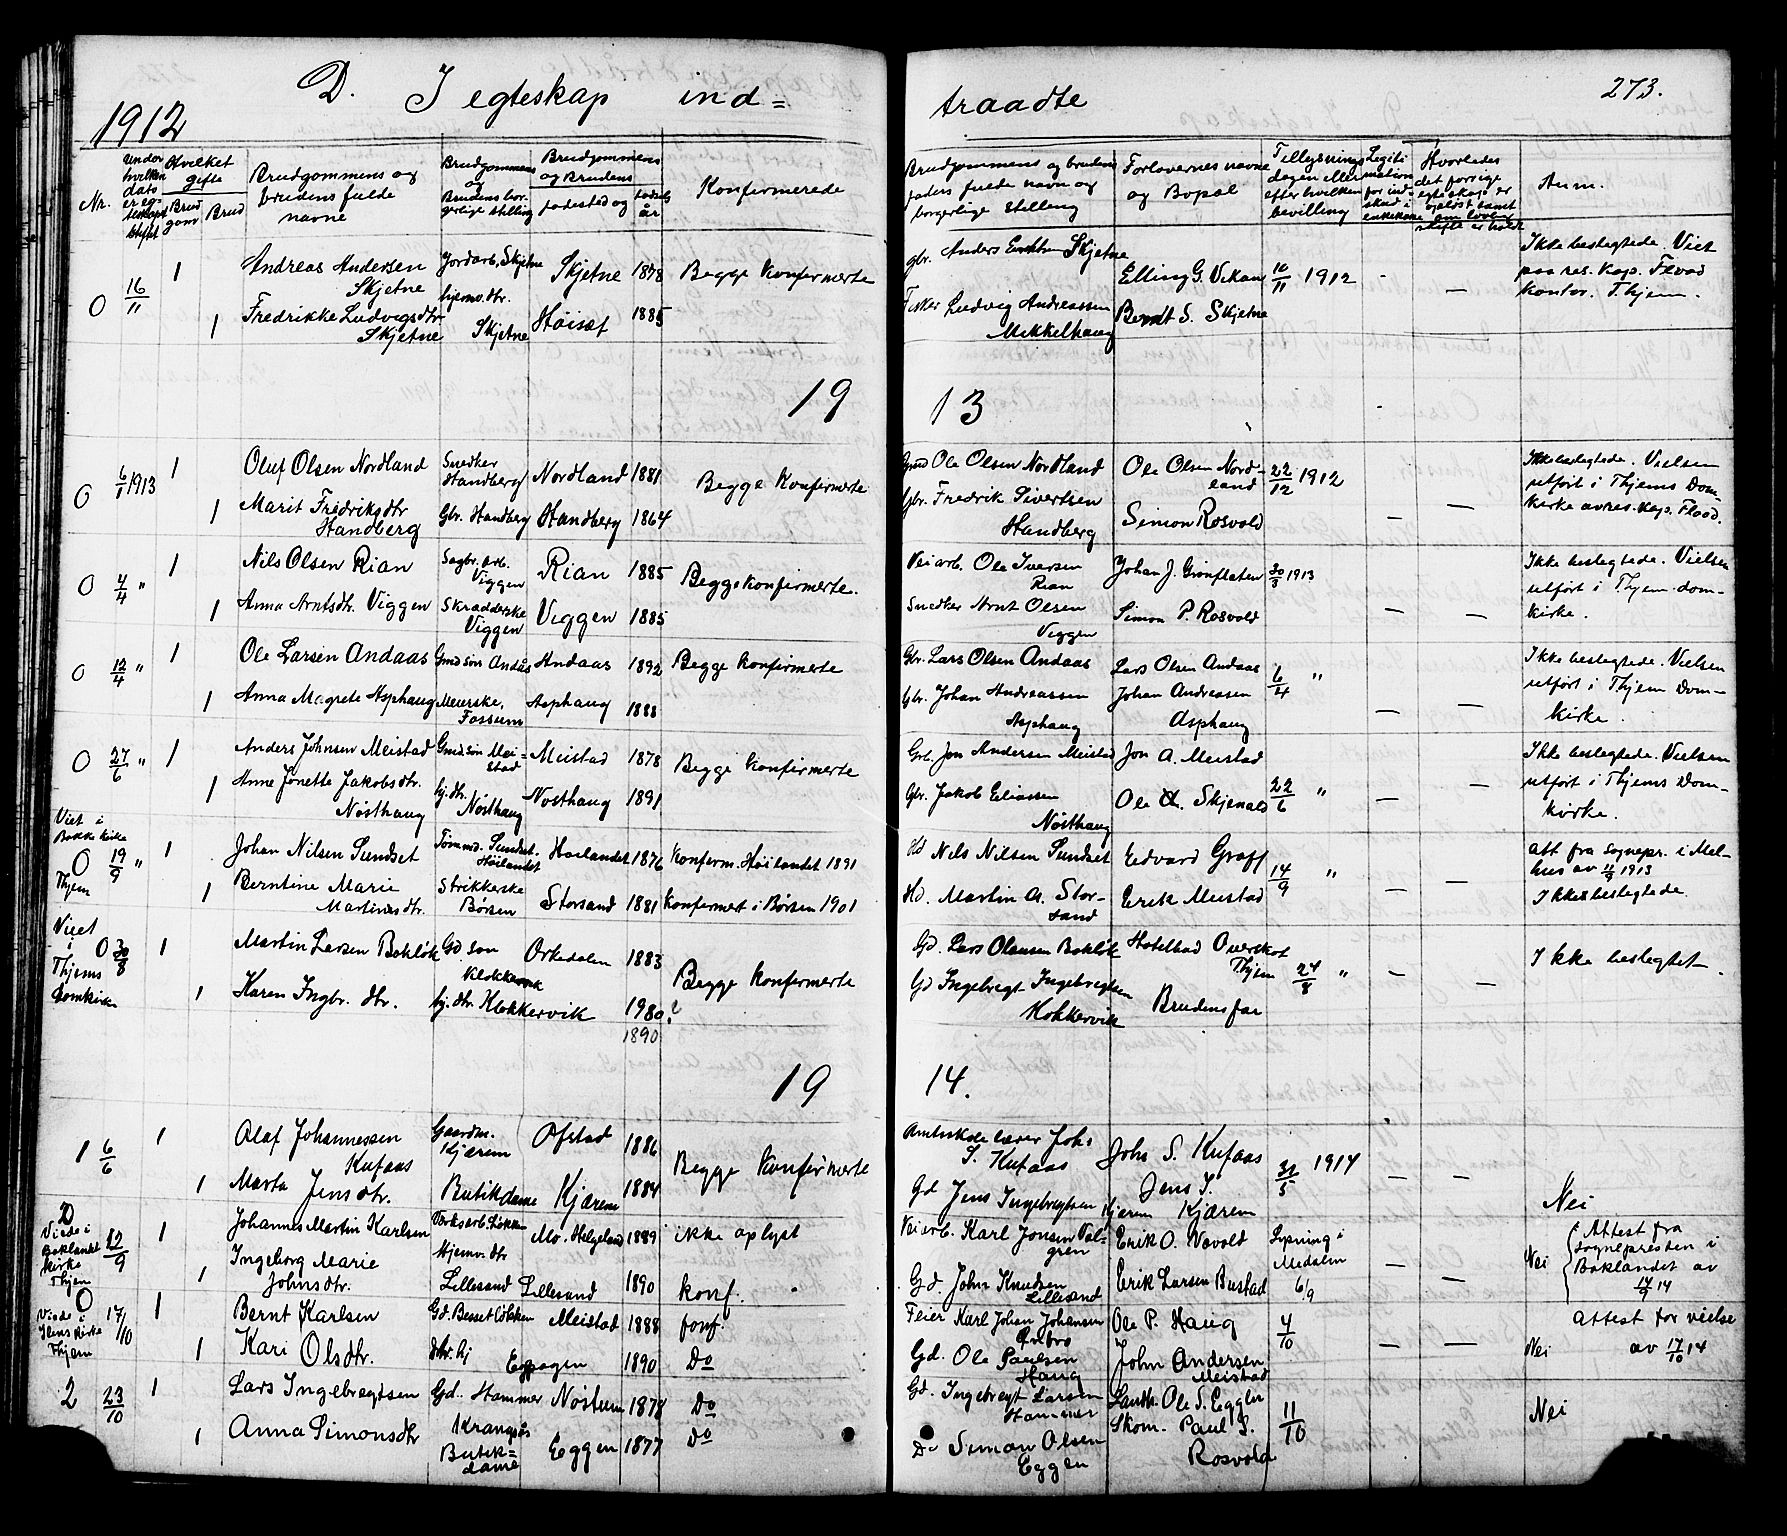 1912
D. I egteskap ind=
traadte
273.
Nr.
Under hvilken dato er egteskapet stiftet
Hvilket gifte
Brudgom
Brud
Brudgommens og brudens fulde navne
Brudgommens og Brudens borgerlige stilling
Brudgommens og Brudens
fødested og
fødselsår
Konfirmerede
Brudgommens og brudens faders fulde navn og borgerlige stilling
Forlovernes navne og Bopæl
Tillysningsdagen eller efter hvilken bevilling
Legitimation for indskud i enkekasse
Hvorledes det forrige egteskap er opløst samt om lovlig skifte er holdt
Anm.
0 16/11 1 Andreas Andersen Skjetne Jordarb. Skjetne Skjetne 1878 Begge Konfirmerte
1 Fredrikke Ludvigsdtr Skjetne hjemv. dtr. Skjetne Høisæt 1885
gbr. Anders Skjetne Elling G. Vekan 10/11 1912 -
Fisker Ludvig Andreassen Mikkelhaug Berndt S. Skjetne —
Ikke beslegtede. Viet paa res. kap. Flood kontor. Thjem.
19 13
0 6/1 1913 1 Oluf Olsen Nordland Snedker Handberg Nordland 1881 Begge Konfirmerte
1 Marit Fredriksdtr Handberg Gbr. Handberg Handberg 1864
Ole Olsen Nordland Ole Olsen Nordland 22/12 1912
Gbr. Fredrik Sivertsen Handberg Simon Rosvold — —
Ikke beslegtede. Vielsen utført i Thjems Domkirke av res. kap. Flood.
0 4/4 " 1 Nils Olsen Rian Sagbr. arb. Viggen Rian 1885 Begge konfirmerte.
1 Anna Arntsdtr. Viggen Skrædderske Viggen Viggen 1885
Veiarb. Ole Iversen Rian Johan J. Grønflaten 30/3 1913
Snedker Arnt Olsen Viggen Simon P. Rosvold — —
Ikke beslegtede. Vielsen utført i Thjem domkirke.
0 12/4 " 1 Ole Larsen Andaas Gmd søn Andås Andaas 1892 Begge konfirmerte
1 Anna Magrete Asphaug Meierske, Fossum Asphaug 1888
Gbr. Lars Olsen Andaas Lars Olsen Andaas 6/4 "
Gbr. Johan Andreassen Asphaug Johan Andreasen Asphaug — —
Ikke beslegtede. Vielsen utført i Thjem Domkirke.
0 27/6 " 1 Anders Johnsen Meistad Gmd søn Meistad Meistad 1878 Begge konfirmerte
1 Anne Jonette Jakobsdtr. Nøsthaug hj. dtr. Nøsthaug Nøsthaug 1891
Gbr. Jon Andersen Meistad Jon A. Meistad
Gbr. Jakob Eliassen Nøsthaug Ole A. Skjenald 22/6 " — —
Ikke beslegtede. Vielsen utført i Thjems Domkirke.
Viet i Bakke kirke Thjem
0 19/9 " 1 Johan Nilsen Sundset Tømmrm. Sundset. Høilandet Høilandet 1876 Konfirm. Høilandet 1891
1 Berntine Marie Martinusdtr. Strikkerske Børsen Storsand 1881 konfirmert i Børsen 1901
Nils Nilsen Sundset Edvard Graff 14/9 "
Hd. Martin A. Storsand Erik Meistad — —
Att fra sognepr. i Melhus av 1913
Ikke beslegtede.
Viet i Thjems Domkirke
0 30/8 1 Martin Larsen Bokløk Gd søn Klokkervik Orkedalen 1883 Begge konfirmerte
1 Karen Ingbr. dtr. hj. dtr. Klokkervik 1980?
1890
Gd. Lars Olausen Bokløk Hotelbud Overskot Thjem 24/8 " —
Gd Ingebregt Ingebregtsen Klokkervik Brudens far —
Ikke beslegtet
19 14.
1 6/6 1 Olaf Johannessen Kufaas Gaardm. Kjærem Ofstad 1886 Begge konfirmerte
1 Marta Jensdtr. Butikdame Kjærem 1884
Amtsskolelærer Joh. S. Kufaas John S. Kufaas 31/5 1914
Gd Jens Ingebregtsen Kjærem Jens I. Kjærem — —
Nei
0 Viede i Baklandet kirke Thjem
12/9 1 Johannes Martin Karlsen Verksarb. Løkken Mo. Helgeland 1889 ikke oplyst
1 Ingeborg Marie Johnsdtr. Hjemv. dtr Lillesand Lillesand 1890 konf.
Veiarb. Karl Jonsen Valgren Erik O. Wovold Lysning i Meldalen 6/9
Gd. John Knudsen Lillesand Erik Larsen Bustad — —
Nei Attest fra sognepresten i Baklandet av 17/9 14
0 Viede i Ilens kirke Thjem
17/10 1 Bernt Karlsen Gd. Besset Løkken Meistad 1888 konf.
1 Kari Olsdtr. dtr. hj Eggagen 1890 Do
Feier Karl Johan Johansen Ørebro Ole P. Haug 4/10
Gd. Ole Paulsen Haug John Andersen Meistad — —
Attest for vielse
Nei av 17/10 14
2 23/10 1 Lars Ingebregtsen Gd. Hammer Nøstum 1878 Do
1 Anna Simonsdtr Krangsås Butikdame Eggen 1877 Do
Gd. Ingebregt Larsen Hammer Landh. Ole S. Eggen 11/10
Do Simon Olsen Eggen Skom. Paul S. Rosvold
Nei